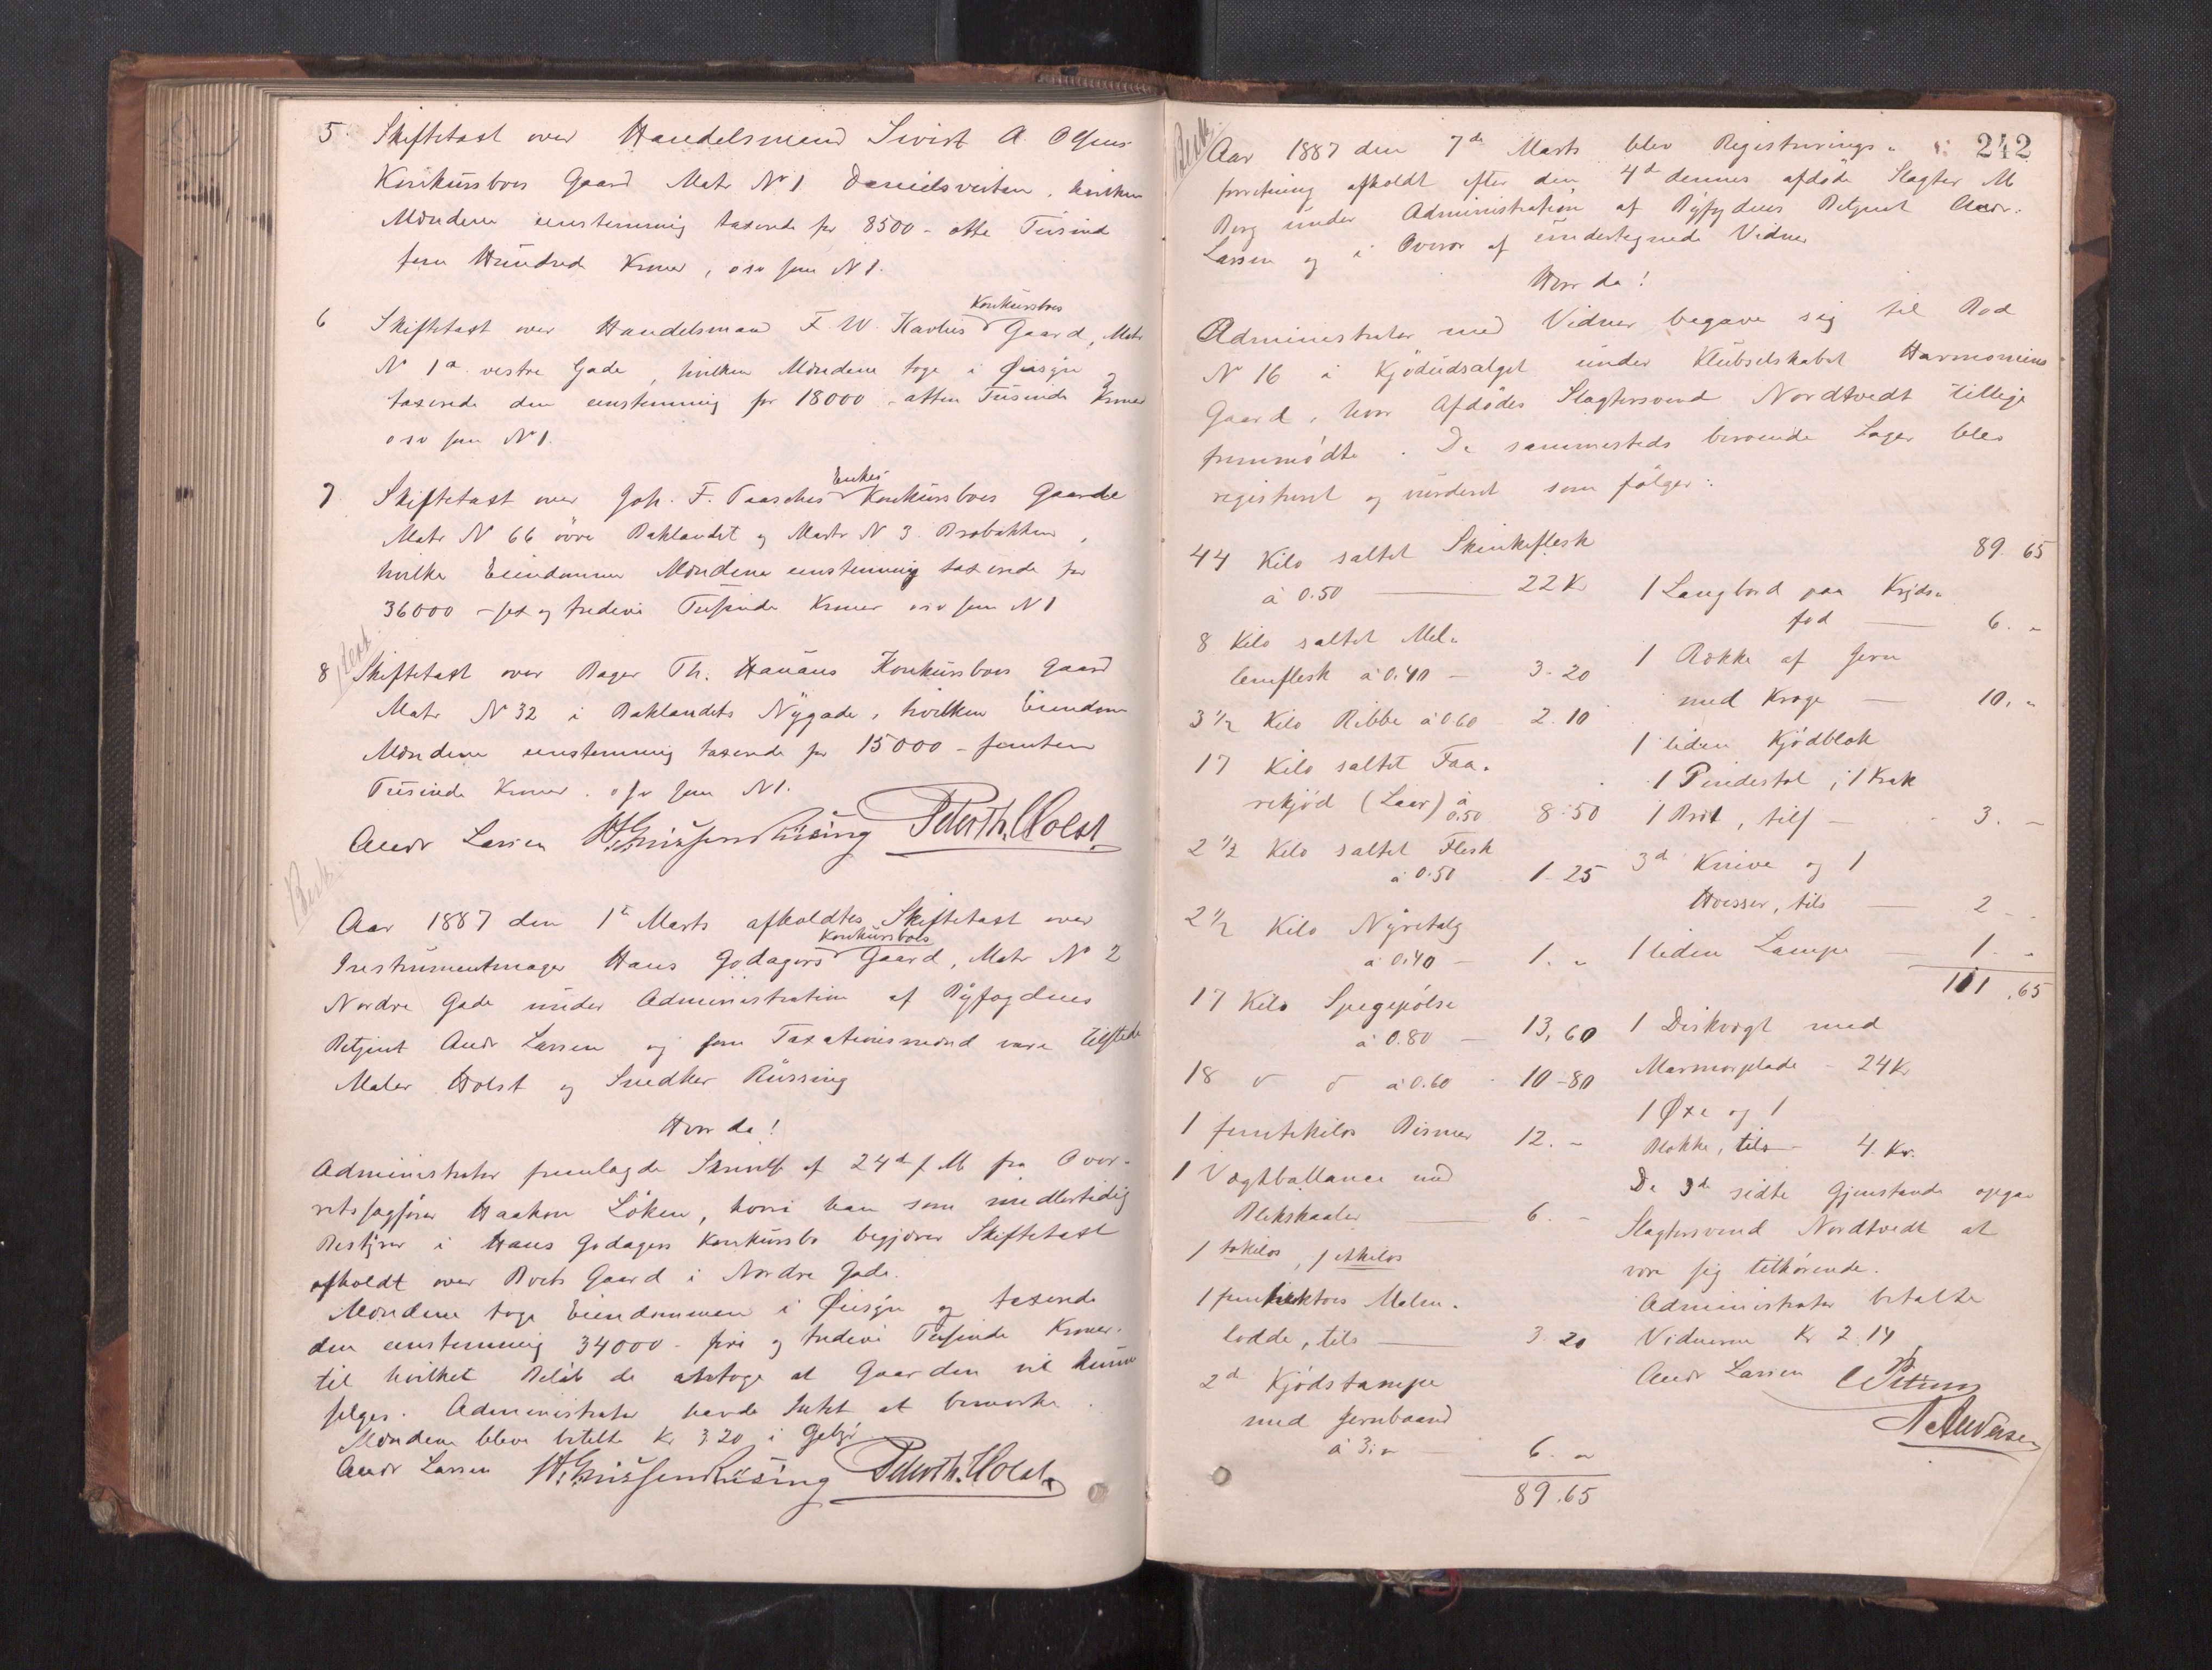 5. Skiftetaxt over Handelsmand Sivert A. Olsens
Konkursboes Gaard Matr No 1 Danielsveiten, hvilken
Mændene eenstemmig taxerede for 8500 - otte Tusind
fem Hundrede Kroner, osv som N 1.
6 Skiftetaxt over Handelsmand F. W. Kavlies Konkursboes Gaard, Matr
No 1a vestre Gade, hvilken Mændene toge i Øiesyn
taxerede den eenstemmig for 18000 - atten Tusinde Kroner
osv som No 1.
7. Skiftetaxt over Joh. F. Paasches Enkes Konkursboes Gaarde
Matr N 66 øvre Baklandet og Matr N 3 Brobakken,
hvilke Eiendomme Mændene eenstemmig taxerede for
36000 - sex og tredive Tusinde Kroner osv som N 1
8 Skiftetaxt over Bager Th. Hauans Konkursboes Gaard
Matr N 32 i Baklandets Nygade, hvilken Eiendom
Mændene eenstemmig taxerede for 15000 - femten
Tusinde Kroner. osv som N 1.
Andr Larsen Rüsing Peter Th. Holst
Besk.
Aar 1887 den 1te Marts afholdtes Skiftetaxt over
Instrumentmager Hans Godagers Konkursboes Gaard, Matr No 2
Nordre Gade under Administration af Byfogdens
Betjent Andr Larsen og som Taxationsmænd vare tilstede
Maler Holst og Snedker Rüssing
Hvor da!
Administrator fremlagde Skrivelse af 24de f. M. fra Over-
retssagfører Haakon Løken, hvori han som midlertidig
Bestyrer i Hans Godagers Konkursbo begjærer Skiftetaxt
afholdt over Boets Gaard i Nordre Gade.
Mændene toge Eiendommen i Øiesyn og taxerede
den eenstemmig 34000 - fire og tredive Tusinde Kroner.
til hvilket Beløb de antoge at Gaarden vil kunne
sælges. Administrator havde Intet at bemærke.
Mændene bleve betalte Kr 3.20 i Gebyr.
Andr Larsen Rüsing Peter Th. Holst
242
Besk.
Aar 1887 den 7de Marts blev Registrerings-
forretning afholdt efter den 4de dennes afdøde Slagter M
Berg under Administration af Byfogdens Betjent Andr:
Larsen og i Overvær af undertegnede Vidner
Hvor da!
Administrator med Vidner begave sig til Bod
No 16 i Kjødudsalget under Klubselskabet Harmoniens
Gaard, hvor Afdødes Slagtersvend Nordtvedt tillige
fremmødte. De sammesteds beroende Lager blev
registreret og vurderet som følger:
44 Kilo saltet Skinkeflesk
à 0.50 22 Kr
8 Kilo saltet Mel-
lemflesk à 0.40 - 3.20
3 1/2 Kilo Ribbe à 0.60 - 2.10
17 Kilo saltet Faa-
rekjød (Laar) à 0.50 8.50
2 1/2 Kilo saltet Flesk
à 0.50 1.25
2 1/2 Kilo Nyretalg
à 0.40 - 1. "
17 Kilo Spegepølse
à 0.80 - 13,60
18 d d à 0.60 - 10-80
1 femtekilos Bismer 12. -
1 Vægtballance med
Blikskaaler 6. -
1 tokilos, 1 etkilos
1 femhektos Malm-
lodde, tils 3.20
2de Kjødstampe
med Jernbaand
à 3. " 6. "
89.65
89.65
1 Langbord paa Kryds-
fod 6. "
1 Række af Jern
med Kroge 10. "
1 liden Kjødblok
1 Pindestol, 1 Krak
1 Bræt, tils - 3. -
3de Knive og 1
Hvæsser, tils 2 -
1 liden Lampe 1. "
111.65
1 Diskvægt med
Marmorplade - 24 Kr
1 Øxe og 1
Blokke, tils - 4. Kr.
De 3de sidste Gjenstande opgav
Slagtersvend Nordtvedt at
være sig tilhørende.
Administrator betalte
Vidnerne Kr 2.14
Andr Larsen
N Andersen